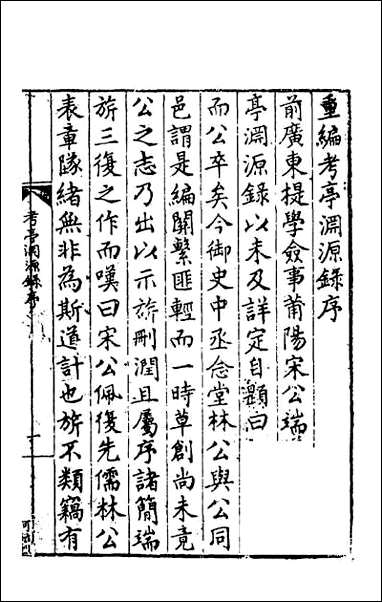 重編考亭淵源錄序
前廣東提學僉事莆陽宋公端
亭淵源錄以未及詳定自題曰
而公卒矣今御史中丞念堂林公與公同
邑謂是編關繫匪輕而一時草創尚未竟
公之志乃出以示旂刪潤且屬序諸簡端
旂三復之作而嘆曰宋公佩復先儒林公
表章隊緒無非為斯道計也旂不類竊有
考亭淵源錄序
一